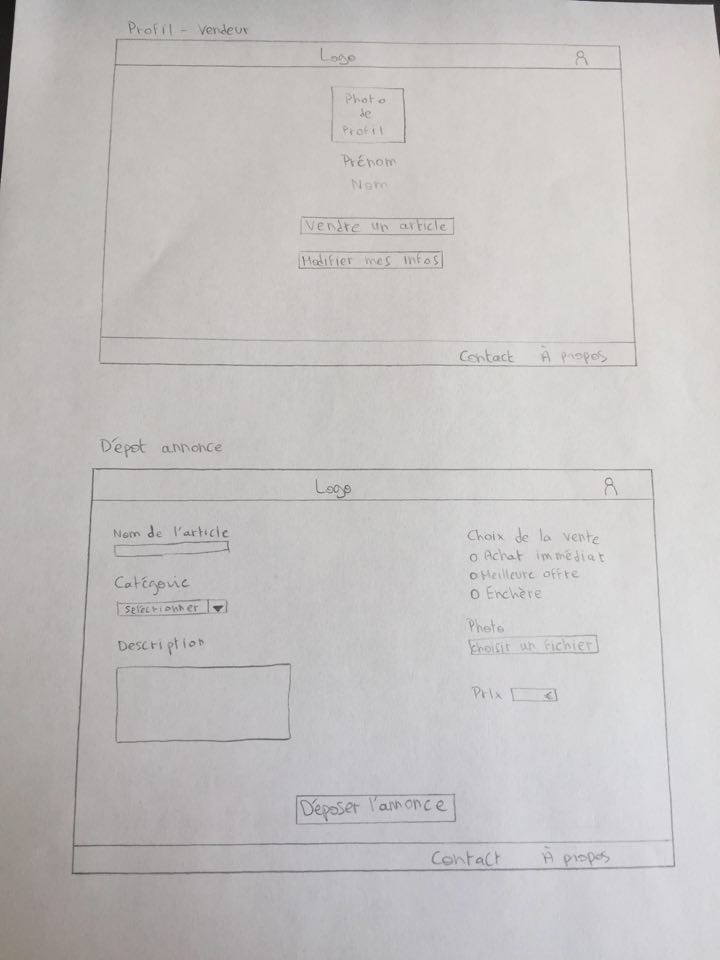 Profil - Vendeur
Logo
Photo
de
Profil
Prénom
Nom
Vendre un article
Modifier mes infos
Contact À propos
Dépot annonce
Logo
Nom de l'article
Catégorie
Sélectionner
Description
Choix de la vente
Achat immédiat
Meilleure offre
Enchère
Photo
choisir un fichier
Prix €
Déposer l'annonce
Contact À propos